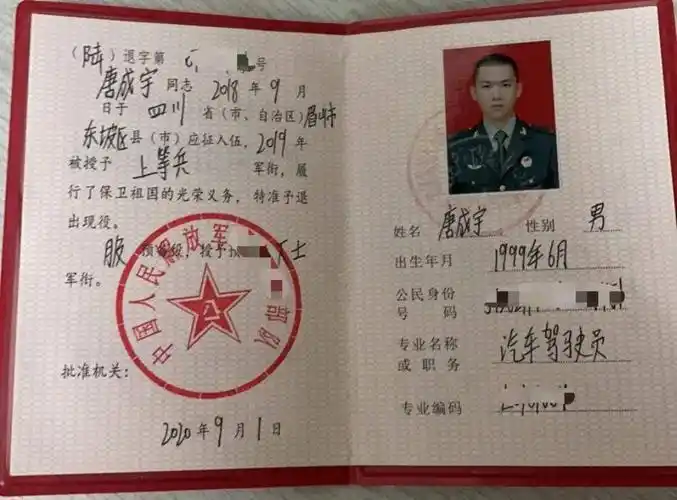 （陆）退字第 号
唐成宇 同志 2018年9月
日于 四川 省（市、自治区）眉山市
东坡区县（市）应征入伍，2019年
被授予 上等兵 军衔，履
行了保卫祖国的光荣义务，特准予退
出现役。
服 预备役，授予 下士
军衔。
中国人民解放军 部队
八一
批准机关：
2020年9月1日
姓名 唐成宇 性别 男
出生年月 1999年6月
公民身份
号 码
专业名称 汽车驾驶员
或 职 务
专业编码